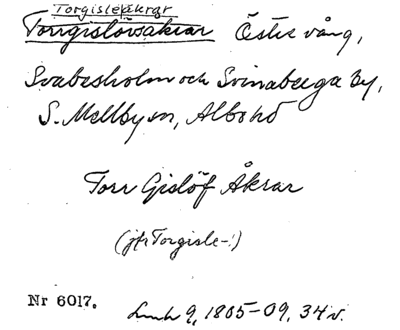 Torgisleåkrar
Torrgislövsåkrar Östre vång,
Svabesholm och Svinaberga By,
S. Mellby sn, Albo hd
Torr Gislöf Åkrar
(jfr Torgisle-!)
Nr 6017. Lmh 9, 1805-09, 34 v.